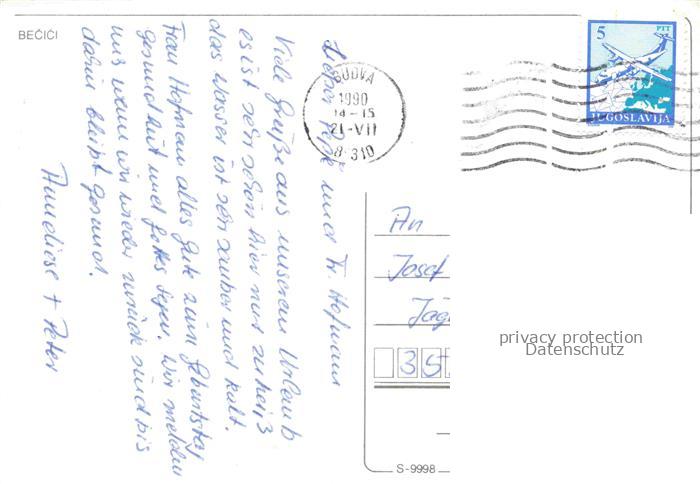 BEČIĆI
Lieber und Fr. Hofmann
Viele Grüße aus unserem Urlaub
es ist sehr schön hier nur zu heiß
das Wasser ist sehr sauber und kalt.
Frau Hofmann alles Gute zum Geburtstag
Gesundheit und Gottes Segen. Wir melden
uns wenn wir wieder zurück sind bis
dahin bleibt gesund.
Anneliese + Peter
BUDVA
1990
14-15
21-VII
8-310
5
PTT
JUGOSLAVIJA
An
Josef
Jäg
35
privacy protection
Datenschutz
S-9998